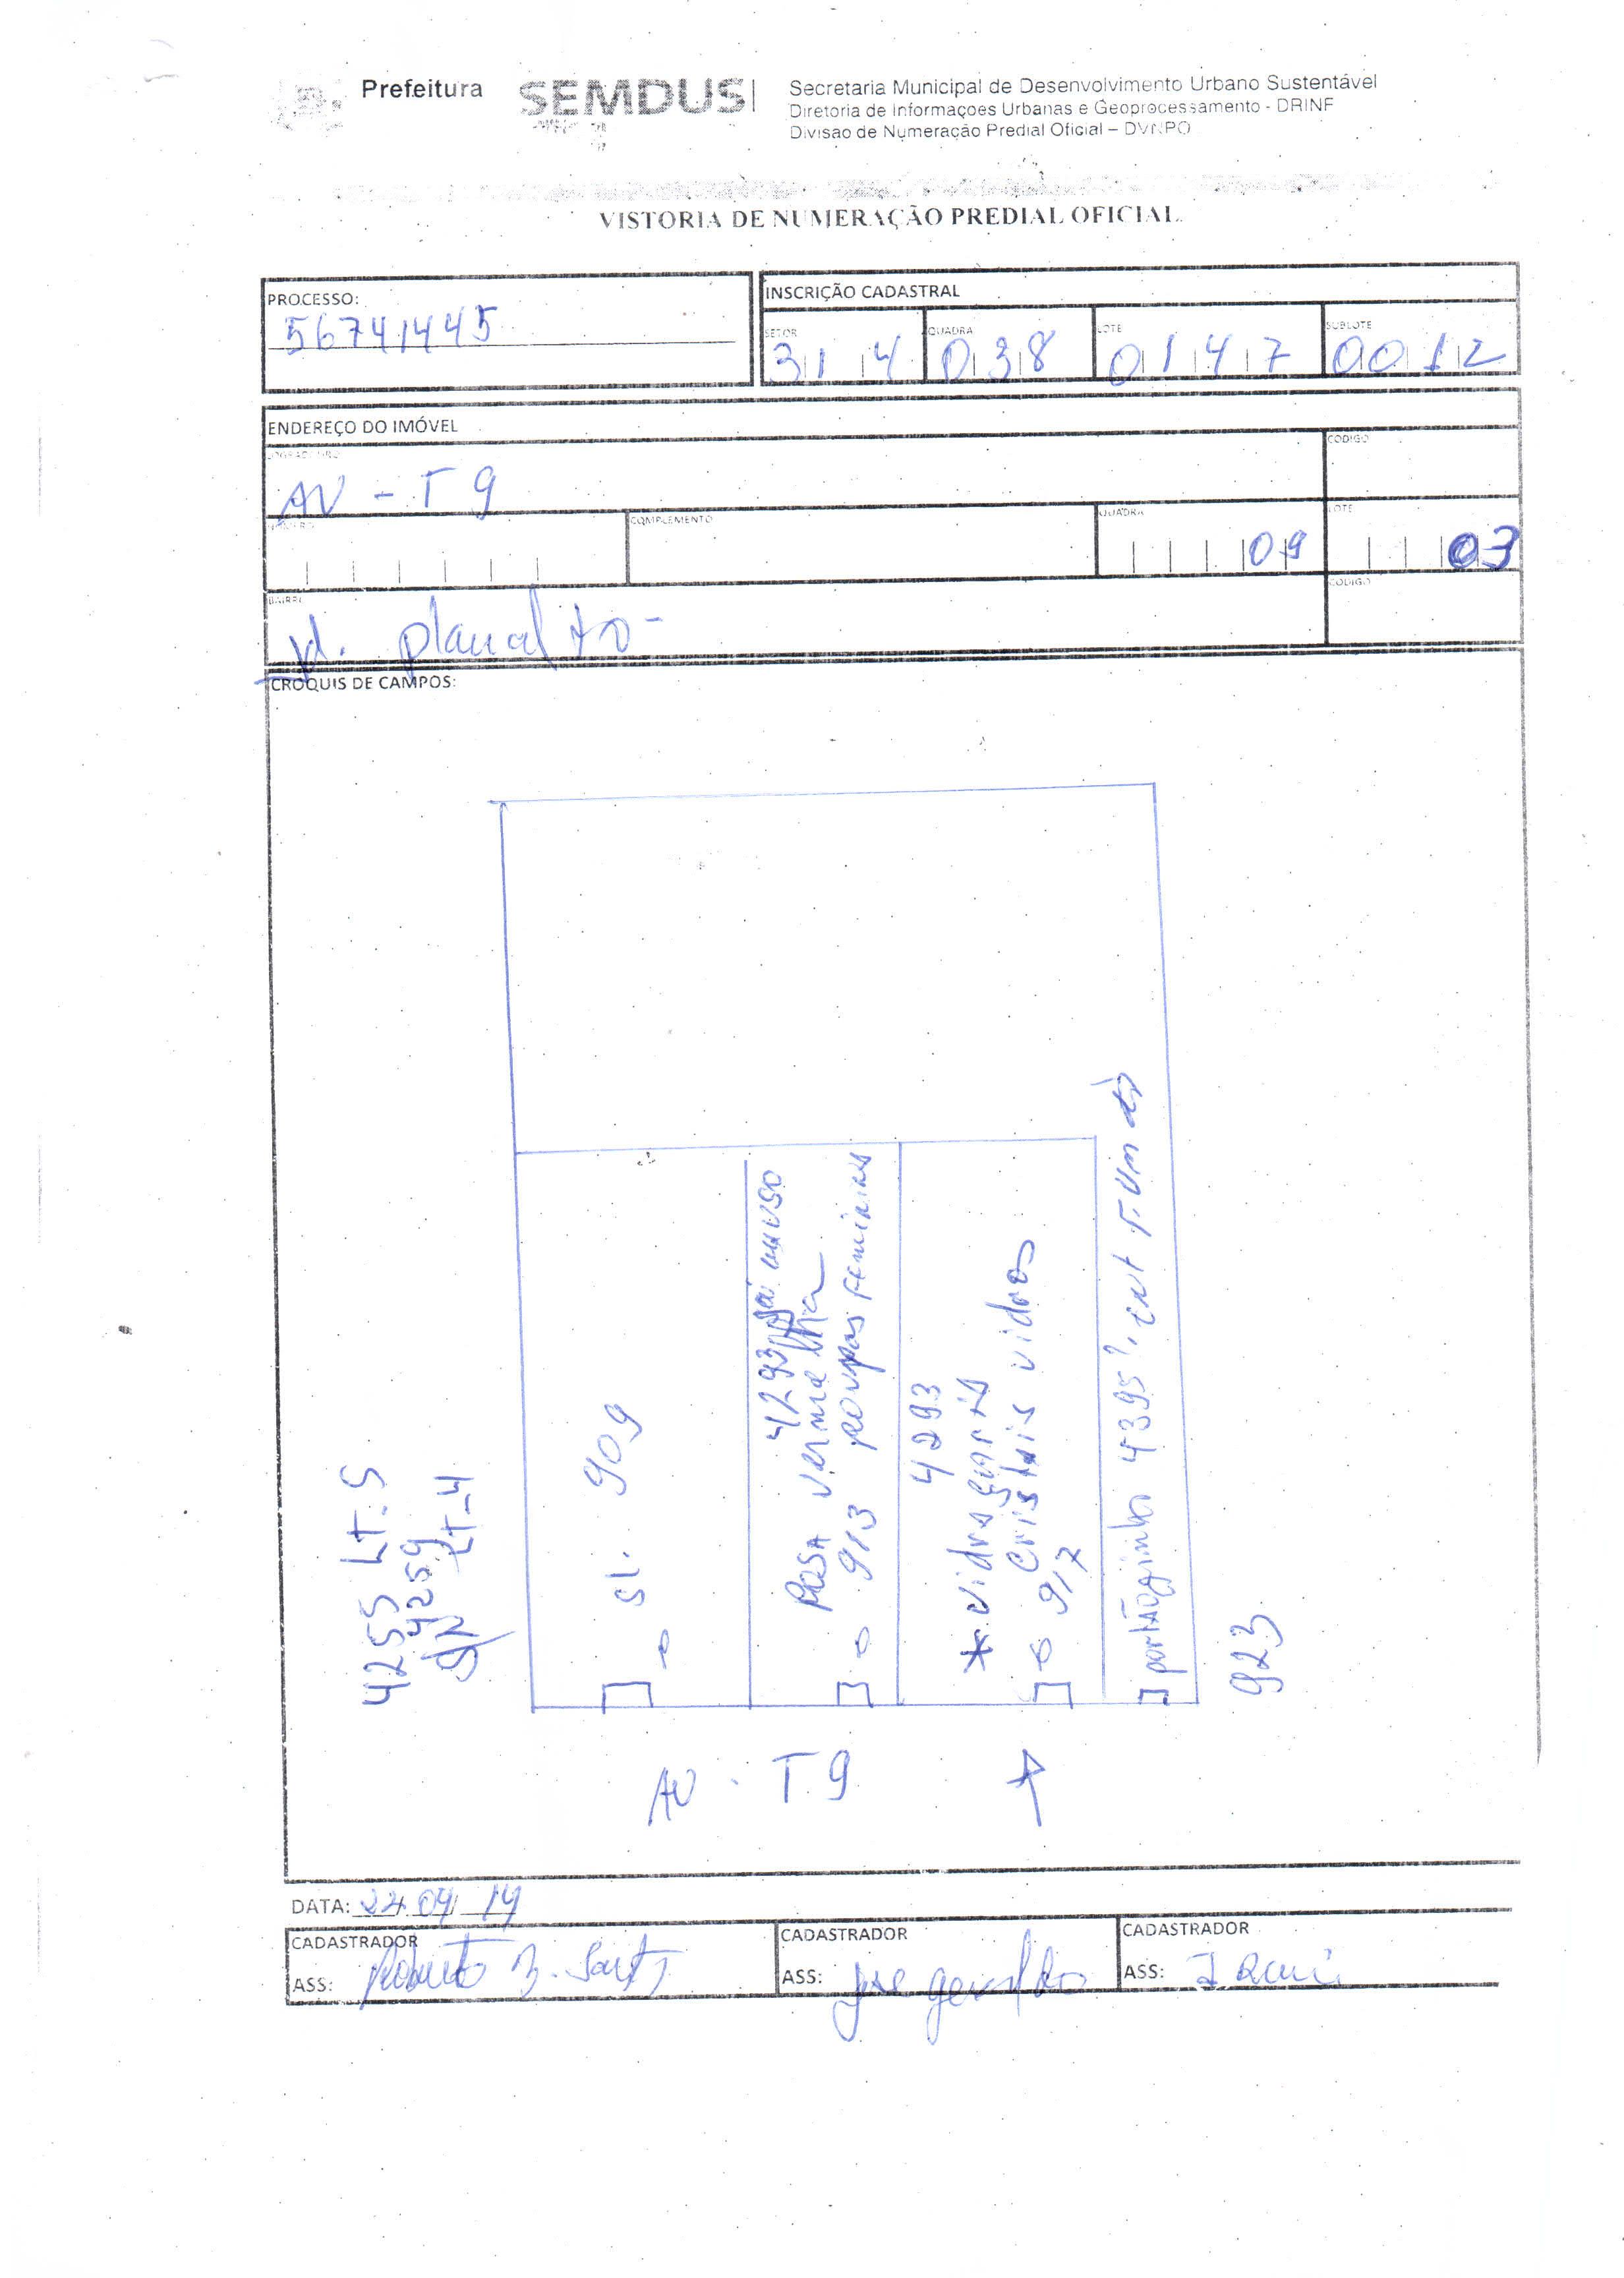 Prefeitura
SEMDUS
Secretaria Municipal de Desenvolvimento Urbano Sustentável
Diretoria de Informaçoes Urbanas e Geoprocessamento - DRINF
Divisao de Numeração Predial Oficial – DVNPO
VISTORIA DE NUMERAÇÃO PREDIAL OFICIAL.
PROCESSO:
56741445
INSCRIÇÃO CADASTRAL
SETOR QUADRA LOTE SUBLOTE
314 038 0147 0012
ENDEREÇO DO IMÓVEL
LOGRADOURO CODIGO
AV - T 9
NUMERO COMPLEMENTO QUADRA LOTE
09 03
BAIRRO CODIGO
planalto -
CROQUIS DE CAMPOS:
4255 Lt. 5
4259
SN Lt-4
sl. 909
4293 já em uso
ROSA vermelha
913 roupas femininas
4293
* vidraçaria
Cristais vidros
917
4395?
923
AV. T 9
DATA: 22.04/ 14
CADASTRADOR
ASS: Roberto
CADASTRADOR
ASS: Jose geraldo
CADASTRADOR
ASS: